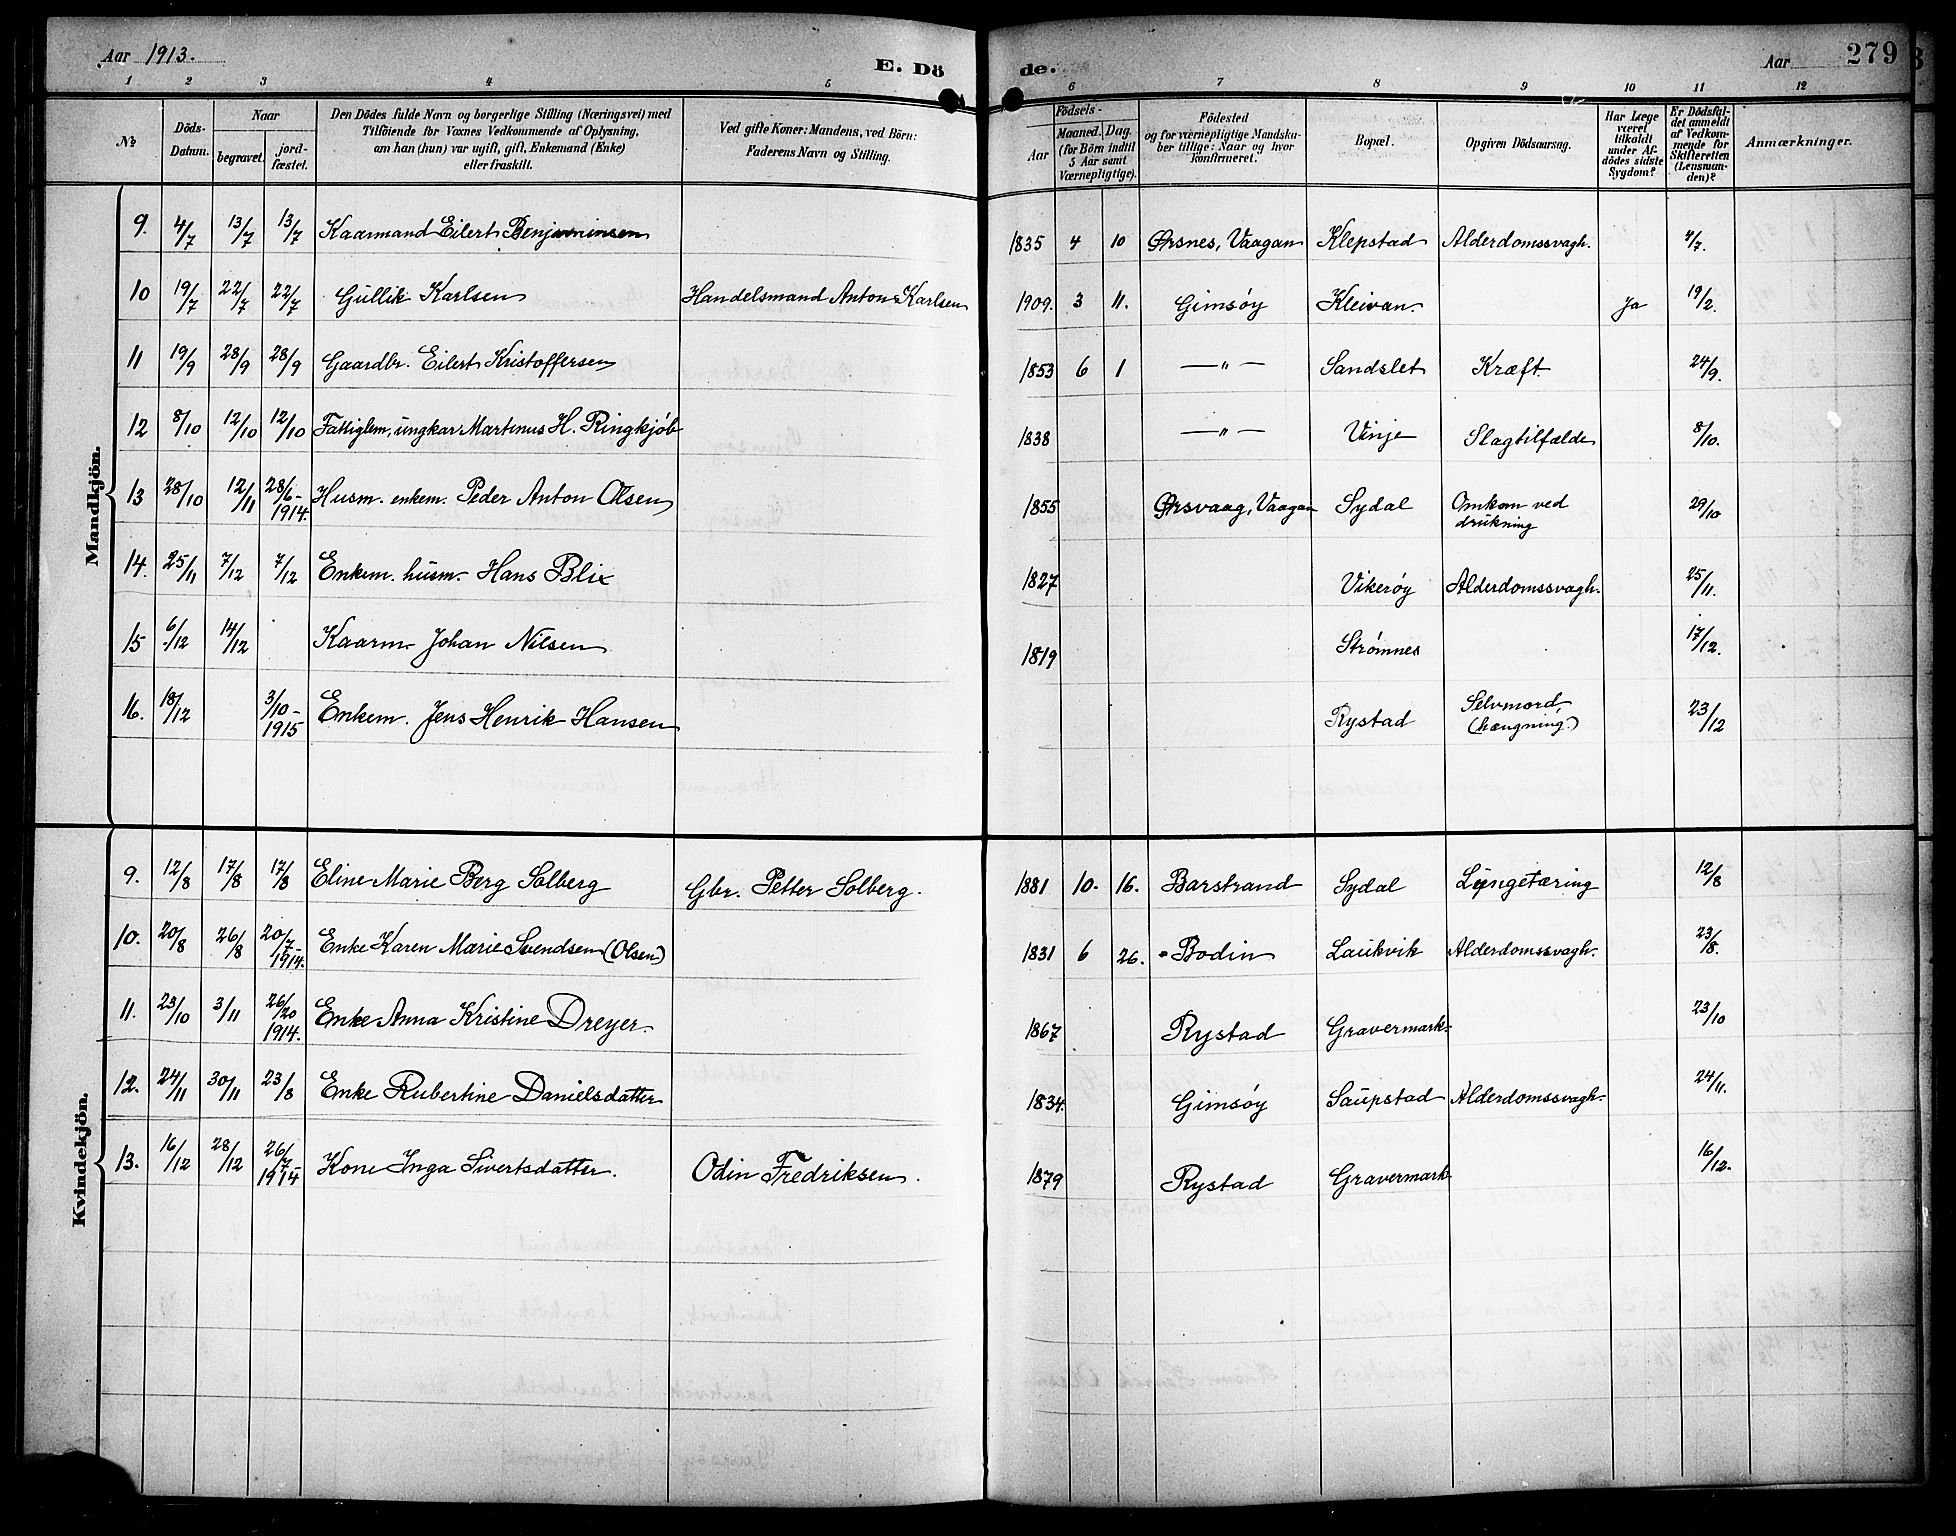 Aar 1913. E. Dö de. Aar 279
1 2 3 4 5 6 7 8 9 10 11 12
№ Döds-Datum. Naar begravet. jordfæstet. Den Dödes fulde Navn og borgerlige Stilling (Næringsvei) med Tilföiende for Voxnes Vedkommende af Oplysning, om han (hun) var ugift, gift, Enkemand (Enke) eller fraskilt. Ved gifte Koner: Mandens, ved Börn: Faderens Navn og Stilling. Födsels- Aar Maaned. Dag. (for Börn indtil 5 Aar samt Værnepligtige). Födested og for værnepligtige Mandskuber tillige: Naar og hvor konfirmeret. Bopæl. Opgiven Dödsaarsag. Har Læge været tilkaldt under Afdödes sidste Sygdom? Er Dödsfaldet anmeldt af Vedkommende for Skifteretten (Lensmanden)? Anmærkninger.
Mandkjön.
9. 4/7 13/7 13/7 Kaarmand Eilert Benjaminsen 1835 4 10 Ørsnes, Vaagan Klepstad Alderdomssvagh. 4/7.
10 19/7 22/7 22/7 Gullik Karlsen Handelsmand Anton Karlsen 1909. 3 11. Gimsøy Kleivan. Ja 19/2.
11 19/9 28/9 28/9 Gaardbr. Eilert Kristoffersen 1853 6 1 —"— Sandslet Kræft 24/9.
12 8/10 12/10 12/10 Fattiglem, ungkar Martinus H. Ringkjøb 1838 —"— Vinje Slagtilfælde 8/10.
13 28/10 12/11 28/6-1914. Husm. enkem. Peder Anton Olsen 1855 Ørsvaag, Vaagan Sydal Omkom ved drukning 29/10
14. 25/11 7/12 7/12 Enkem. husm. Hans Blix 1827 Vikerøy Alderdomssvagh. 25/11.
15 6/12 14/12 Kaarm. Johan Nilsen 1819 Strømnes 17/12.
16. 18/12 3/10-1915 Enkem. Jens Henrik Hansen Rystad Selvmord (hængning.) 23/12
Kvindekjön.
9. 12/8 17/8 17/8 Eline Marie Berg Solberg Gbr. Petter Solberg. 1881 10. 16. Barstrand Sydal Lungetæring 12/8
10. 20/8 26/8 20/7-1914. Enke Karen Marie Svendsen (Olsen) 1831 6 26. Bodin Laukvik Alderdomssvagh. 23/8.
11. 23/10 3/11 26/20 1914. Enke Anna Kristine Dreyer. 1867 Rystad Gravermark. 23/10
12. 24/11 30/11 23/8 Enke Rubertine Danielsdatter 1834. Gimsøy Saupstad Alderdomssvagh. 24/11.
13. 16/12 28/12 26/7-1914 Kone Inga Sivertsdatter. Odin Fredriksen. 1879 Rystad Gravermark 16/12.